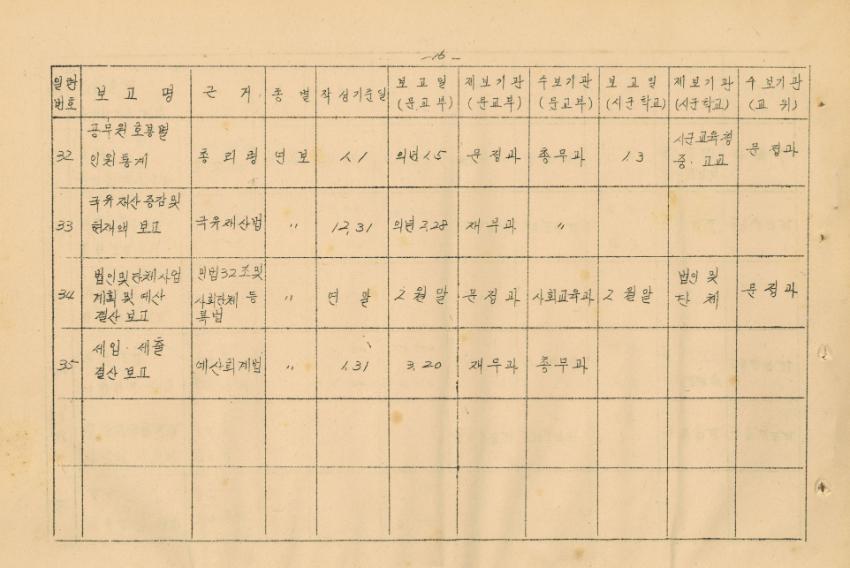 - 16 -
일련 번호 | 보고명 | 근거 | 종별 | 작성기준일 | 보고일 (문교부) | 제보기관 (문교부) | 수보기관 (문교부) | 보고일 (시군학교) | 제보기관 (시군학교) | 수보기관 (교위)
32 | 공무원 호봉별 인원통계 | 총리령 | 연보 | 1.1 | 익년 1.5 | 문정과 | 총무과 | 1.3 | 시군교육청 중·고교 | 문정과
33 | 국유재산 증감및 현재액 보고 | 국유재산법 | 〃 | 12.31 | 익년 2.28 | 재무과 | 〃
34 | 법인및단체사업 계획및예산 결산보고 | 민법32조및 사회단체 등 록법 | 〃 | 연말 | 2월말 | 문정과 | 사회교육과 | 2월말 | 법인및 단체 | 문정과
35 | 세입·세출 결산보고 | 예산회계법 | 〃 | 1.31 | 3.20 | 재무과 | 총무과